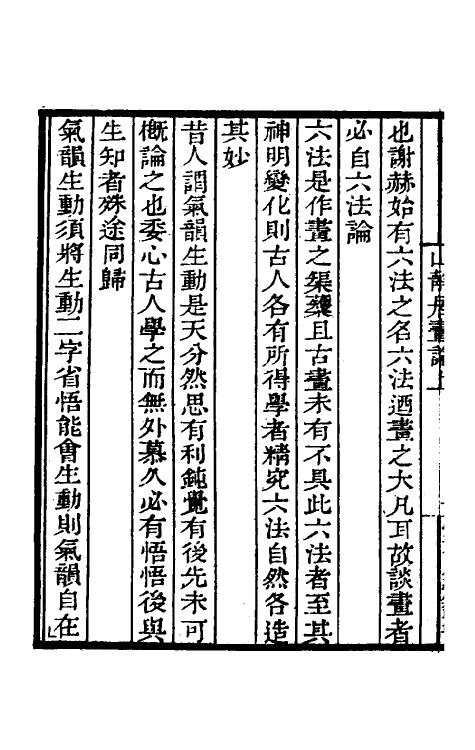 也謝赫始有六法之名六法迺畫之大凡耳故談畫者
必自六法論
六法是作畫之榘矱且古畫未有不具此六法者至其
神明變化則古人各有所得學者精究六法自然各造
其妙
昔人謂氣韻生動是天分然思有利鈍覺有後先未可
槪論之也委心古人學之而無外慕久必有悟悟後與
生知者殊途同歸
氣韻生動須將生動二字省悟能會生動則氣韻自在